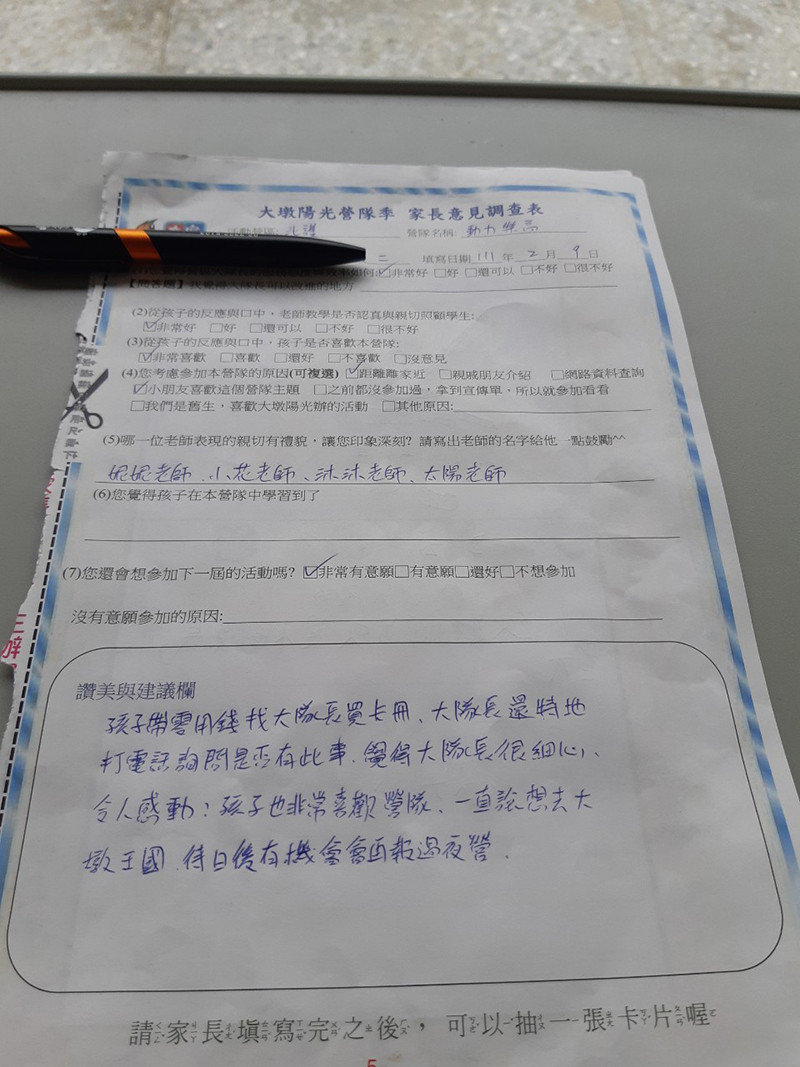 大墩陽光營隊季 家長意見調查表
活動營區: 北 營隊名稱: 動力樂高
二 填寫日期 111 年 2 月 9 日
如何:☑非常好 □好 □還可以 □不好 □很不好
【問答題】我覺得大隊長可以改進的地方
(2)從孩子的反應與口中，老師教學是否認真與親切照顧學生:
☑非常好 □好 □還可以 □不好 □很不好
(3)從孩子的反應與口中，孩子是否喜歡本營隊:
☑非常喜歡 □喜歡 □還好 □不喜歡 □沒意見
(4)您考慮參加本營隊的原因(可複選) ☑距離離家近 □親戚朋友介紹 □網路資料查詢
☑小朋友喜歡這個營隊主題 □之前都沒參加過，拿到宣傳單，所以就參加看看
□我們是舊生，喜歡大墩陽光辦的活動 □其他原因:
(5)哪一位老師表現的親切有禮貌，讓您印象深刻? 請寫出老師的名字給他一點鼓勵^^
妮妮老師、小花老師、沐沐老師、太陽老師
(6)您覺得孩子在本營隊中學習到了
(7)您還會想參加下一屆的活動嗎? ☑非常有意願□有意願□還好□不想參加
沒有意願參加的原因:
讚美與建議欄
孩子帶零用錢找大隊長買卡冊、大隊長還特地
打電話詢問是否有此事、覺得大隊長很細心、
令人感動；孩子也非常喜歡營隊、一直說想去大
墩王國、待日後有機會會再報過夜營、
請ㄑㄧㄥˇ家ㄐㄧㄚ長ㄓㄤˇ填ㄊㄧㄢˊ寫ㄒㄧㄝˇ完ㄨㄢˊ之ㄓ後ㄏㄡˋ，可ㄎㄜˇ以ㄧˇ抽ㄔㄡ一ㄧ張ㄓㄤ卡ㄎㄚˇ片ㄆㄧㄢˋ喔ㄛ
5